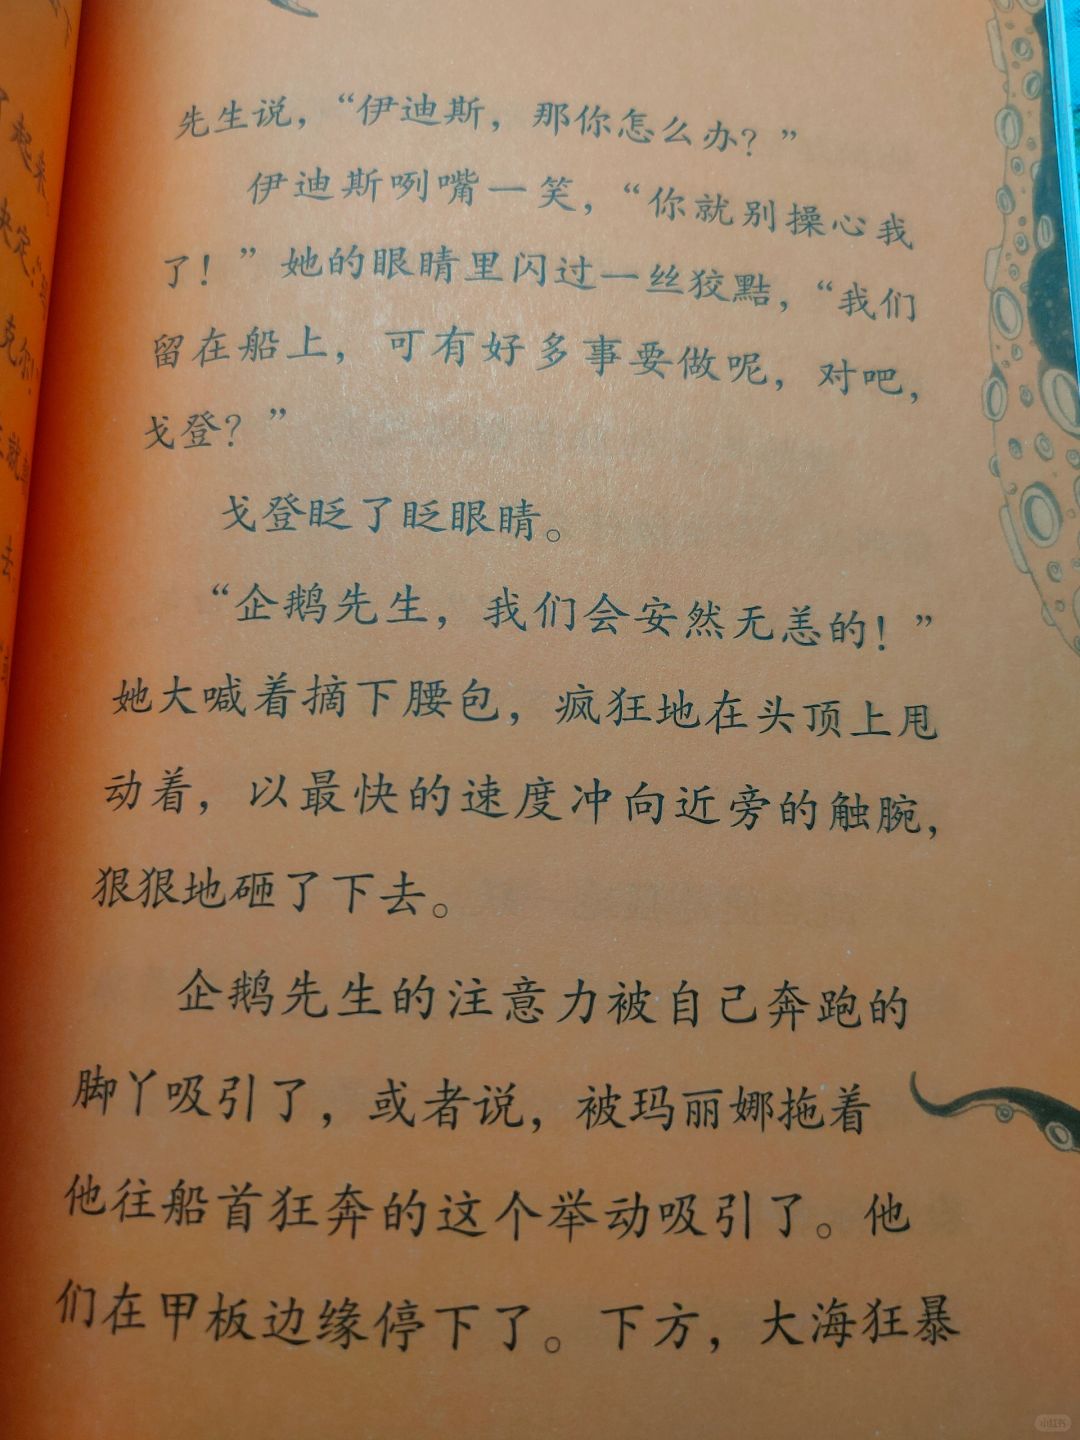 先生说，“伊迪斯，那你怎么办？”
伊迪斯咧嘴一笑，“你就别操心我
了！”她的眼睛里闪过一丝狡黠，“我们
留在船上，可有好多事要做呢，对吧，
戈登？”
戈登眨了眨眼睛。
“企鹅先生，我们会安然无恙的！”
她大喊着摘下腰包，疯狂地在头顶上甩
动着，以最快的速度冲向近旁的触腕，
狠狠地砸了下去。
企鹅先生的注意力被自己奔跑的
脚丫吸引了，或者说，被玛丽娜拖着
他往船首狂奔的这个举动吸引了。他
们在甲板边缘停下了。下方，大海狂暴
起来
决定
去
小红书